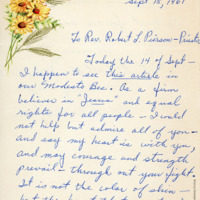 Sept 18, 1961
To Rev. Robert L. Pierson - Priests
Today the 14 of Sept -
I happen to see this article in
our Modesto Bee. As a firm
believer in "Jesus" and equal
rights for all people - I could
not help but admire all of you -
and say my heart is with you,
and may courage and strength
prevail - through out your fight.
It is not the color of skin -